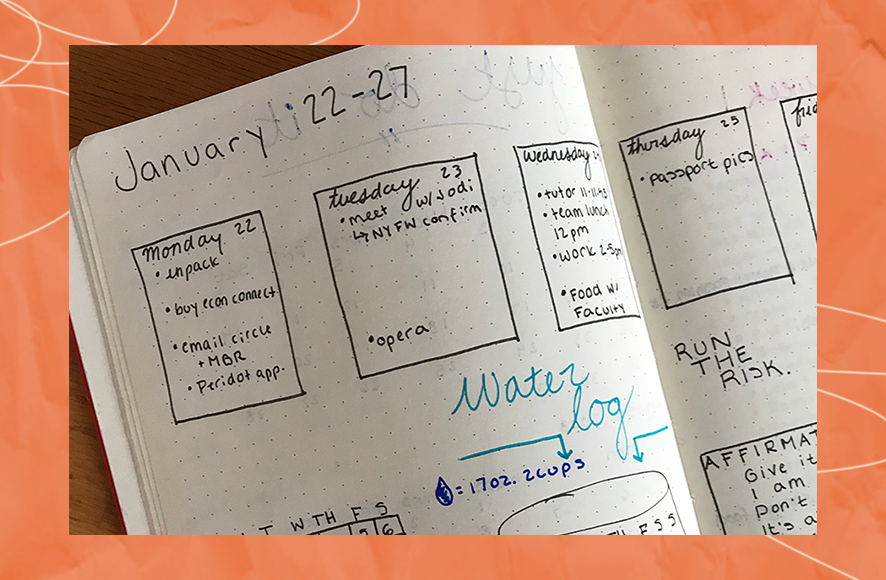 January 22-27
Monday 22
• unpack
• buy econ connect
• email circle
+ MBR
• Peridot app.
tuesday 23
• meet w/ Jodi
↳ NYFW confirm
• opera
wednesday
• tutor 11-11:45
• team lunch
12pm
• work 2-5pm
• Food w/
Faculty
thursday 25
• passport pics
frid
RUN
THE
RISK.
Water
log
= 17oz. 2cups
T W TH F S
5 6
F S S
AFFIRMAT
Give it
I am
Don't
It's a
just do it